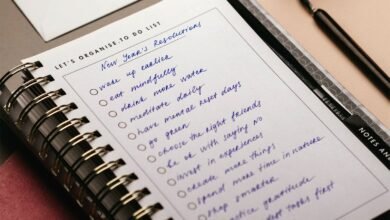 LET'S ORGANISE-TO DO LIST
New Year's Resolutions
wake up earlier
eat mindfully
drink more water
meditate daily
have mental reset days
go green
choose the right friends
be ok with saying no
invest in experiences
create more things
spend more time in nature
shop smarter
gratitude
tasks first
NOTES AND